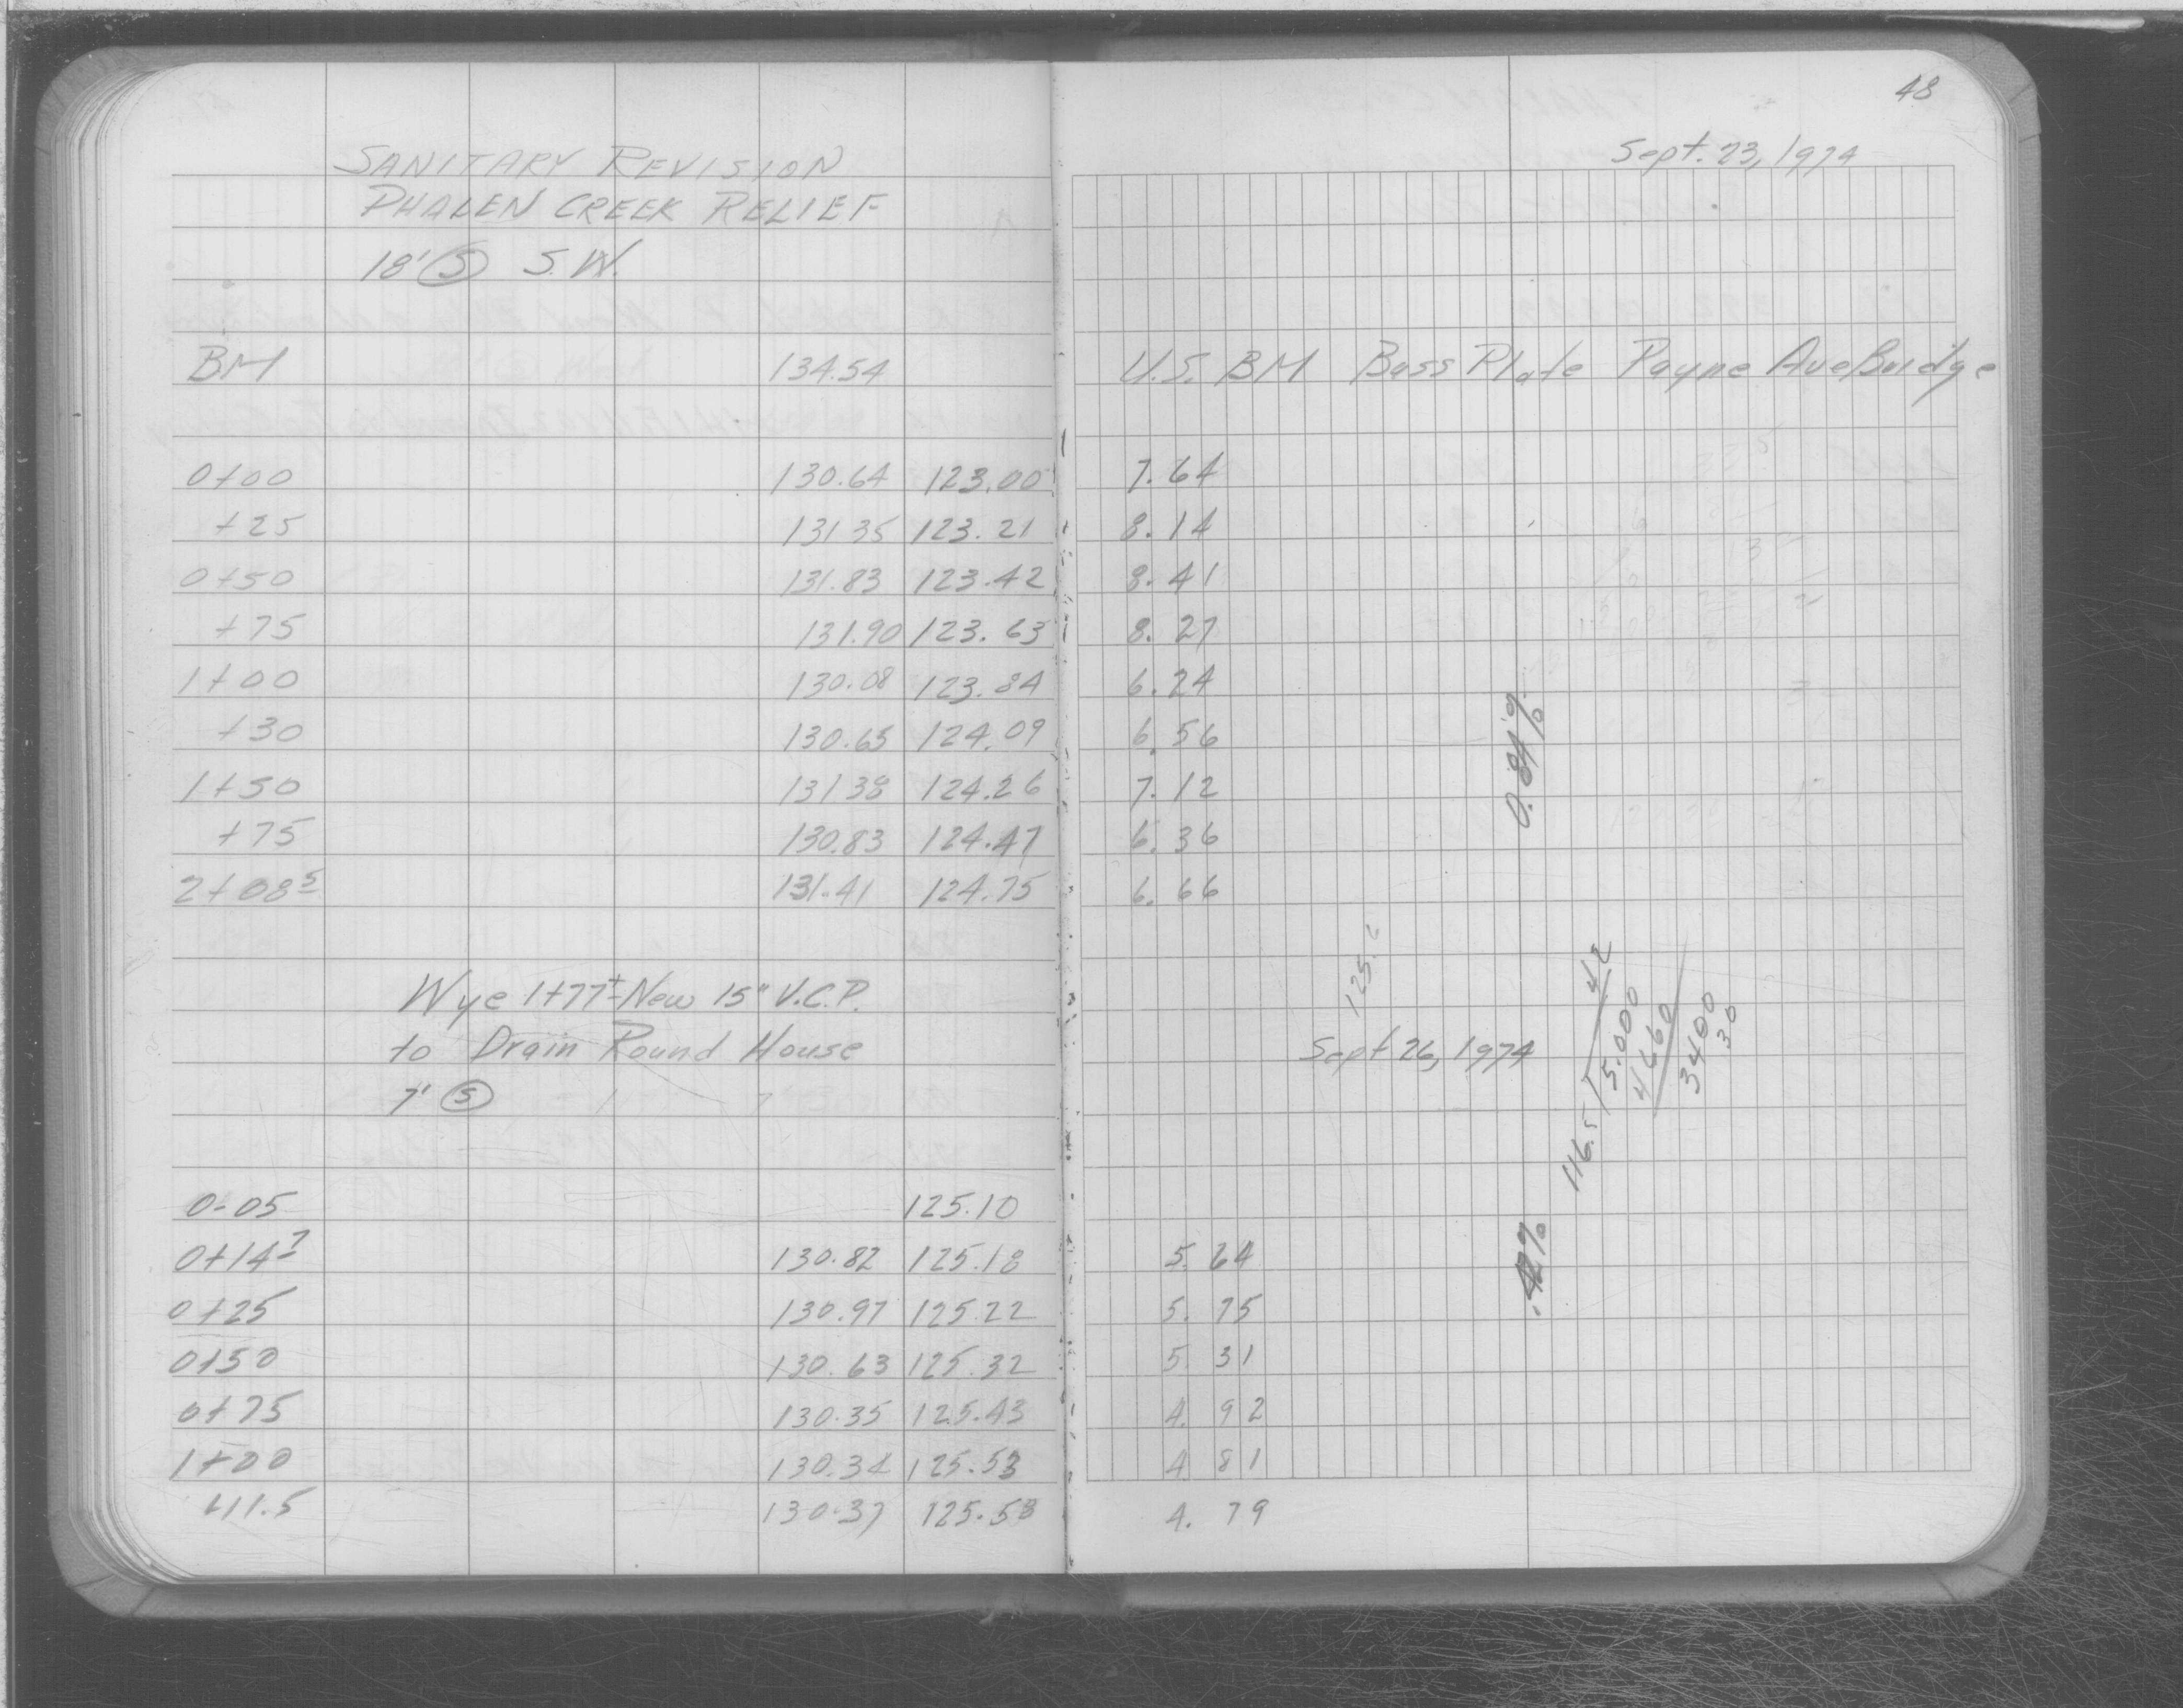 48
Sept. 23, 1974
SANITARY REVISION
PHALEN CREEK RELIEF
18' S S.W.
BM 134.54 U.S. BM Bass Plate Payne Ave Bridge
0+00 130.64 123.00 7.64
+25 131 35 123.21 8.14
0+50 131.83 123.42 8.41
+75 131.90 123.63 8.27
1+00 130.08 123.84 6.24
+30 130.65 124.09 6.56
1+50 131 38 124.26 7.12
+75 130.83 124.47 6.36
2+08 5 131.41 124.75 6.66
0.84%
Wye 1+77± New 15" V.C.P.
to Drain Round House
7' S
Sept 26, 1974
42
116.5 5.000
4660
3400
30
0-05 125.10
0+14 7 130.82 125.18 5.64
0+25 130.97 125.22 5.75
0+50 130.63 125.32 5.31
0+75 130.35 125.43 4.92
1+00 130.34 125.53 4 81
+11.5 130.37 125.58 4.79
.42%